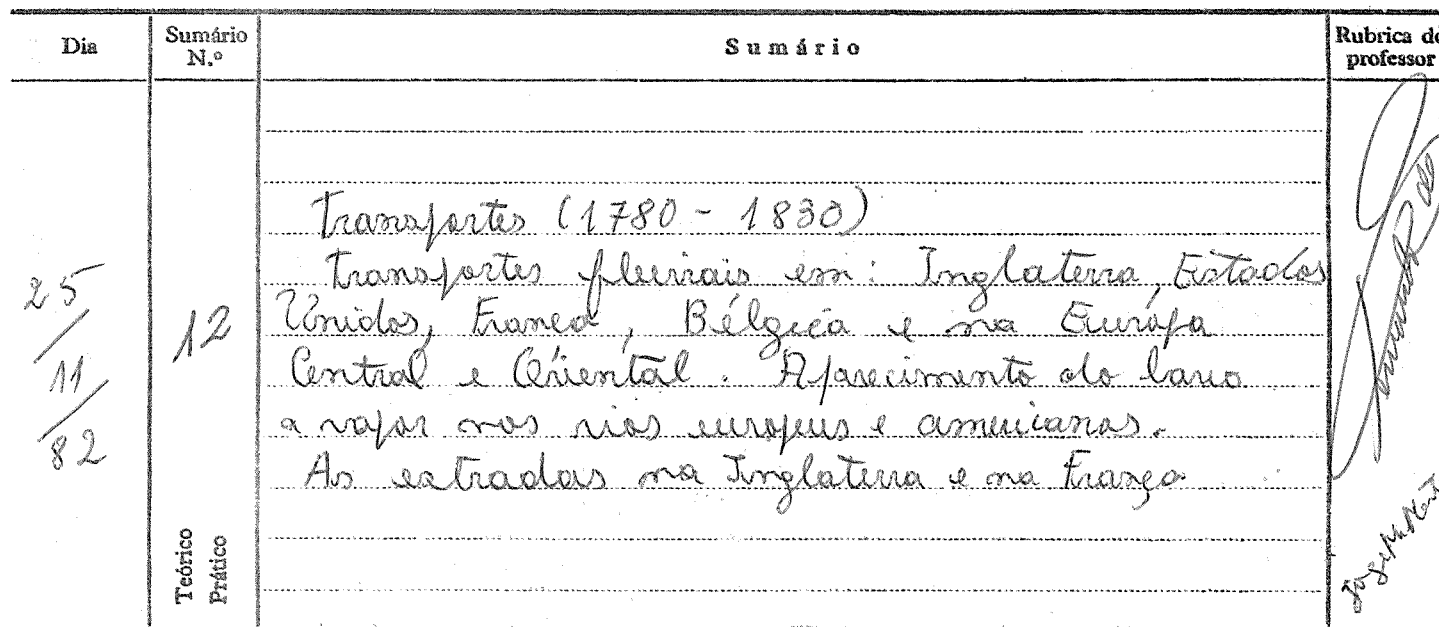 Dia
Sumário
N.º
Sumário
Rubrica do
professor
Transportes (1780 - 1830)
Transportes fluviais em: Inglaterra, Estados
Unidos, França, Bélgica e na Europa
Central e Oriental. Aparecimento do barco
a vapor nos rios europeus e americanos.
As estradas na Inglaterra e na França
25
/
11
/
82
12
Teórico
Prático